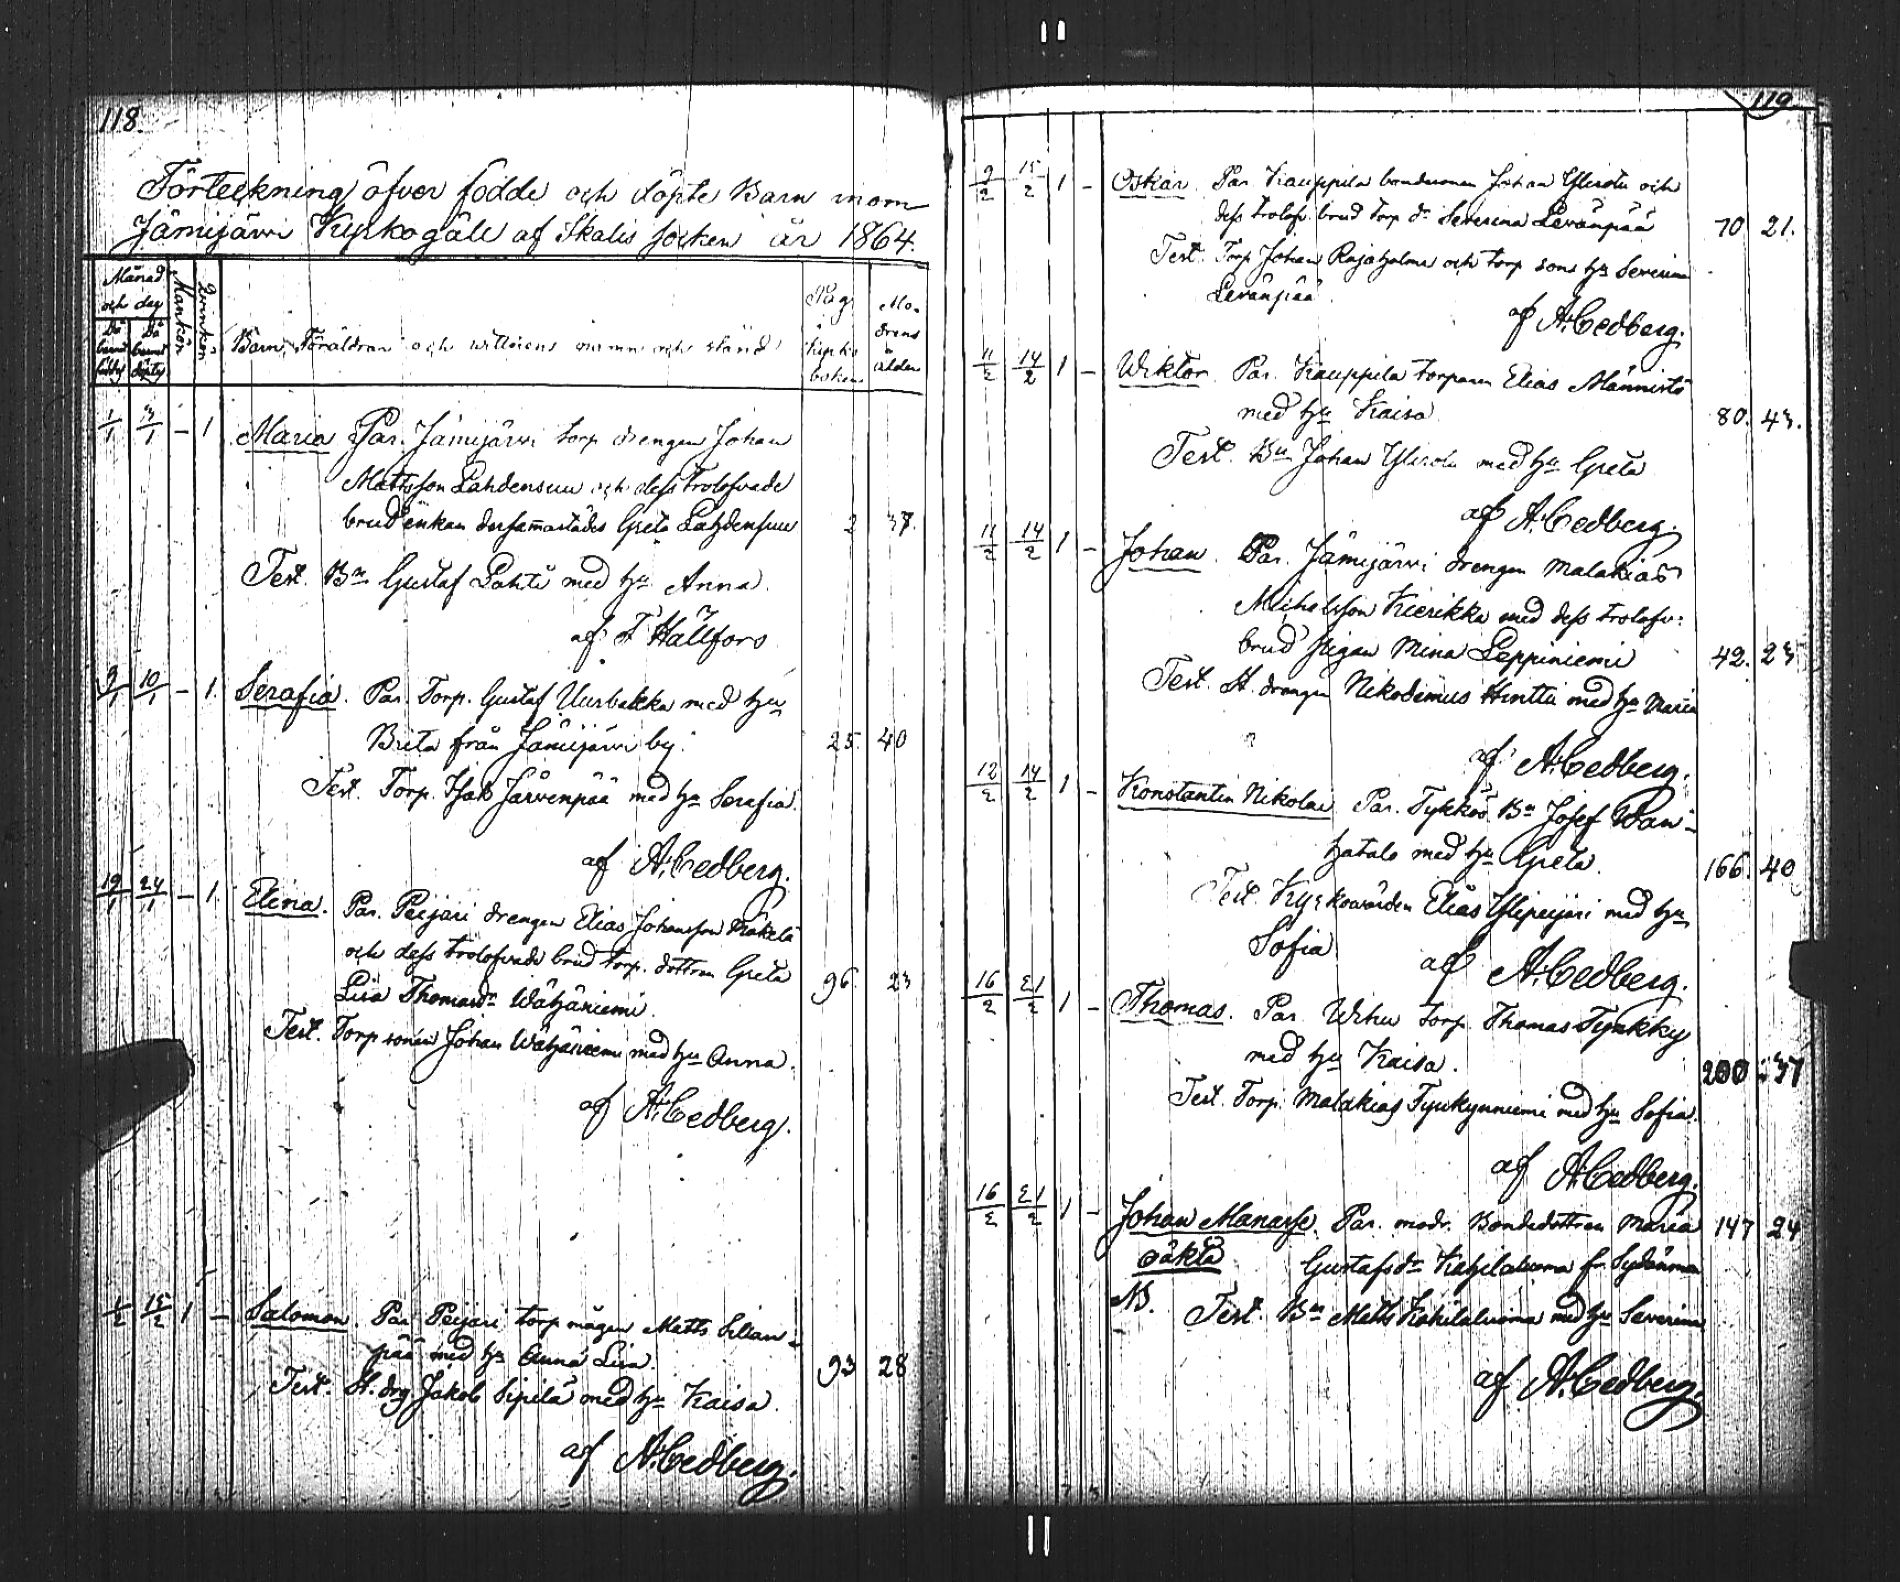 118.
Förteckning öfver födde och döpte Barn inom
Jämijärvi Kyrkogäll af Ikalis socken år 1864.
Månad och dag
Då barnet föddes
Då barnet döptes
Mankön
Qvinkön
Barn, Föräldrar och vittnens namn och stånd
Pag i kyrko boken
Modrens ålder
1/1 3/1 – 1 Maria Par. Jämijärvi torp drengen Johan
Mattsson Lahdensuu och dess trolofvade
brud enkan dersammastädes Greta Lahdensuu 2 37.
Test. Bn Gustaf Lahti med hu Anna.
af F Hällfors
9/1 10/1 – 1. Serafia. Par. Torp. Gustaf Uusbakka med hu
Brita från Jämijärvi by. 25 40
Test. Torp. Isak Järvenpää med hu Serafia.
af A. Cedberg.
19/1 24/1 – 1. Elina. Par. Peijari drengen Elias Johansson Mäkelä
och dess trolofvade brud torp. dottren Greta
Lisa Thomasdr Wähäniemi. 96. 23
Test. Torp sonen Johan Wähäniemi med hu Anna.
af A. Cedberg.
1/2 15/2 1 – Salomon. Par Peijari torp mågen Matts Silian-
pää med hu Anna Lisa. 93 28
Test. St. drg Jakob Sipilä med hu Kaisa.
af A. Cedberg.
119
9/2 15/2 1 – Oskar. Par Kauppila bondesonen Johan Ylirotu och
dess trolof. brud torp dr Severina Levänpää 70 21.
Test. Torp Johan Rajaholma och torp sons hu Severina
Levänpää
af A. Cedberg.
11/2 14/2 1 – Wiktor. Par. Kauppila torparen Elias Männistö
med hu Kaisa 80. 43.
Test. Bn Johan Ylirotu med hu Greta
af A. Cedberg.
11/2 14/2 1 – Johan. Par. Jämijärvi drengen Malakias
Michelsson Kierikka med dess trolofv:
brud pigan Mina Leppiniemi 42. 23
Test. St. drengen Nikodemus Hinttu med hu Maria
af A. Cedberg.
12/2 14/2 1 – Konstantin Nikolai Par. Tykköö Bn Josef Wan-
hatalo med hu Greta. 166. 40
Test. Kyrkovärden Elias Ylipeijari med hu
Sofia. af A. Cedberg.
16/2 21/2 1 – Thomas. Par Wihu torp. Thomas Tyrkky
med hu Kaisa. 200 37
Test. Torp. Malakias Tyrkynniemi med hu Sofia.
af A. Cedberg.
16/2 21/2 1 – Johan Manasse. Par. modr. Bondedottren Maria 147 24
oäkta Gustafsdr Kahilaluoma fr. Sydänmaa
NB. Test. Bn Matts Kahilaluoma med hu Severina
af A. Cedberg.